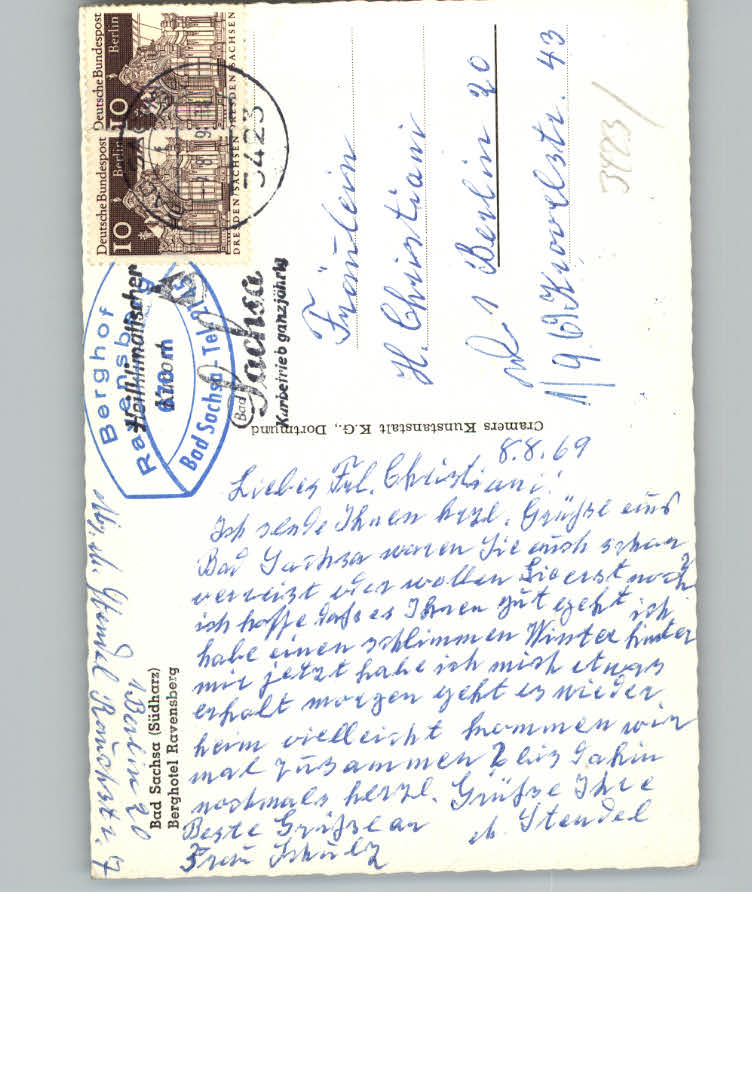 Bad Sachsa (Südharz)
Berghotel Ravensberg
8.8.69
Liebes Frl. Christiani!
Ich sende Ihnen herzl. Grüße aus
Bad Sachsa waren Sie auch schon
verreizt oder wollen Sie erst noch?
ich hoffe daß es Ihnen gut geht ich
habe einen schlimmen Winter hinter
mir jetzt habe ich mich etwas
erholt morgen geht es wieder
heim vielleicht kommen wir
mal zusammen bis dahin
nochmals herzl. Grüße Ihre
Beste Grüße an
M. Stendel
Frau Schulz
Abs. M. Stendel
1 Berlin 20
Rauchstr. 7
Cramers Kunstanstalt K.G., Dortmund
Deutsche Bundespost
Berlin
10
DRESDEN/SACHSEN
Deutsche Bundespost
Berlin
10
DRESDEN/SACHSEN
3423
Heilklimatischer
Kurort
Bad Sachsa
Kurbetrieb ganzjährig
Berghof
Ravensberg
Bad Sachsa - Tel.
Fräulein
H. Christiani
1 Berlin 20
43
3423/